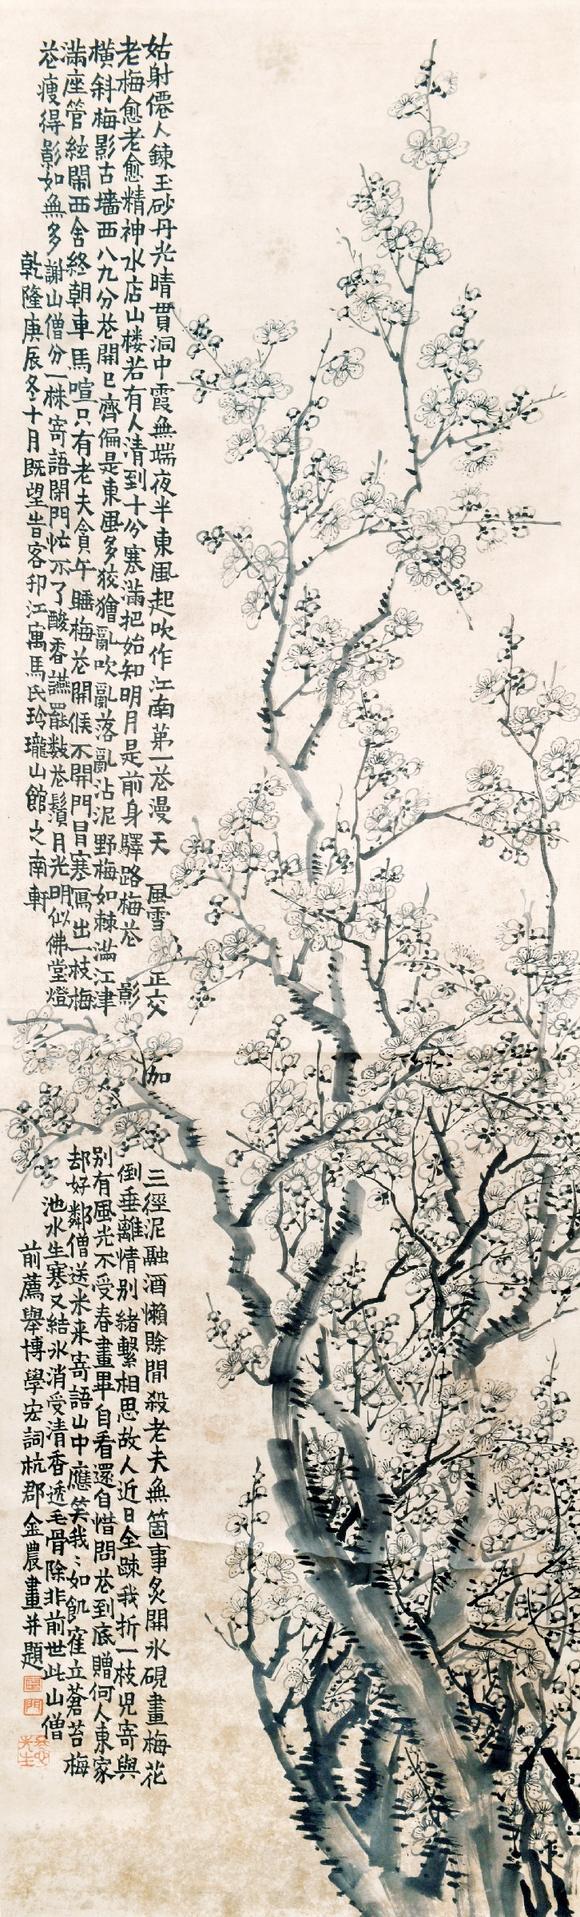 姑射僊人鍊玉砂丹光晴貫洞中霞無端夜半東風起吹作江南第一花漫天風雪正交加三徑泥融酒懶賖閒殺老夫無箇事炙開氷硯畫梅花
老梅愈老愈精神水店山楼若有人清到十分寒滿把始知明月是前身驛路梅花影倒垂離情别緒繫相思故人近日全踈我折一枝児寄與
橫斜梅影古墻西八九分花開已齊偏是東風多狡獪亂吹亂落亂沾泥野梅如棘滿江津别有風光不受春畫畢自看還自惜問花到底贈何人東家
滿座管絃鬧西舍終朝車馬喧只有老夫貪午睡梅花開候不開門冒寒寫出一枝梅却好鄰僧送米来寄語山中應笑我我如飢雀立蒼苔梅
花瘦得影如無多謝山僧分一株寄語閉門忙不了酸香讌罷數花鬚月光明似佛堂燈池水生寒又結氷消受清香透毛骨除非前世此山僧
乾隆庚辰冬十月既望昔客邗江寓馬氏玲瓏山館之南軒
前薦舉博學宏詞杭郡金農畫并題